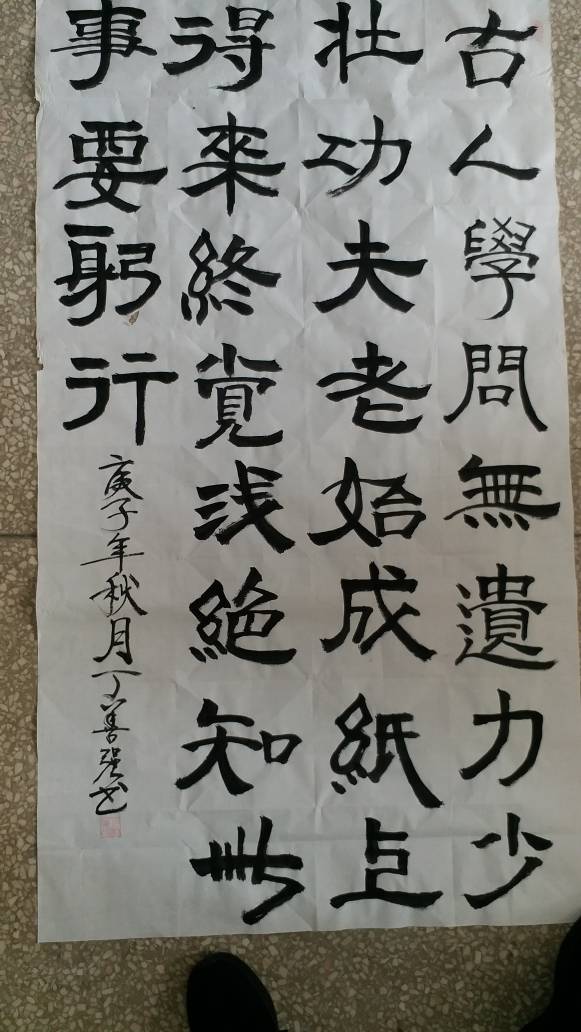 古人學問無遺力少
壮功夫老始成紙上
得來終覚浅絶知此
事要躬行
庚子年秋月丁善强书